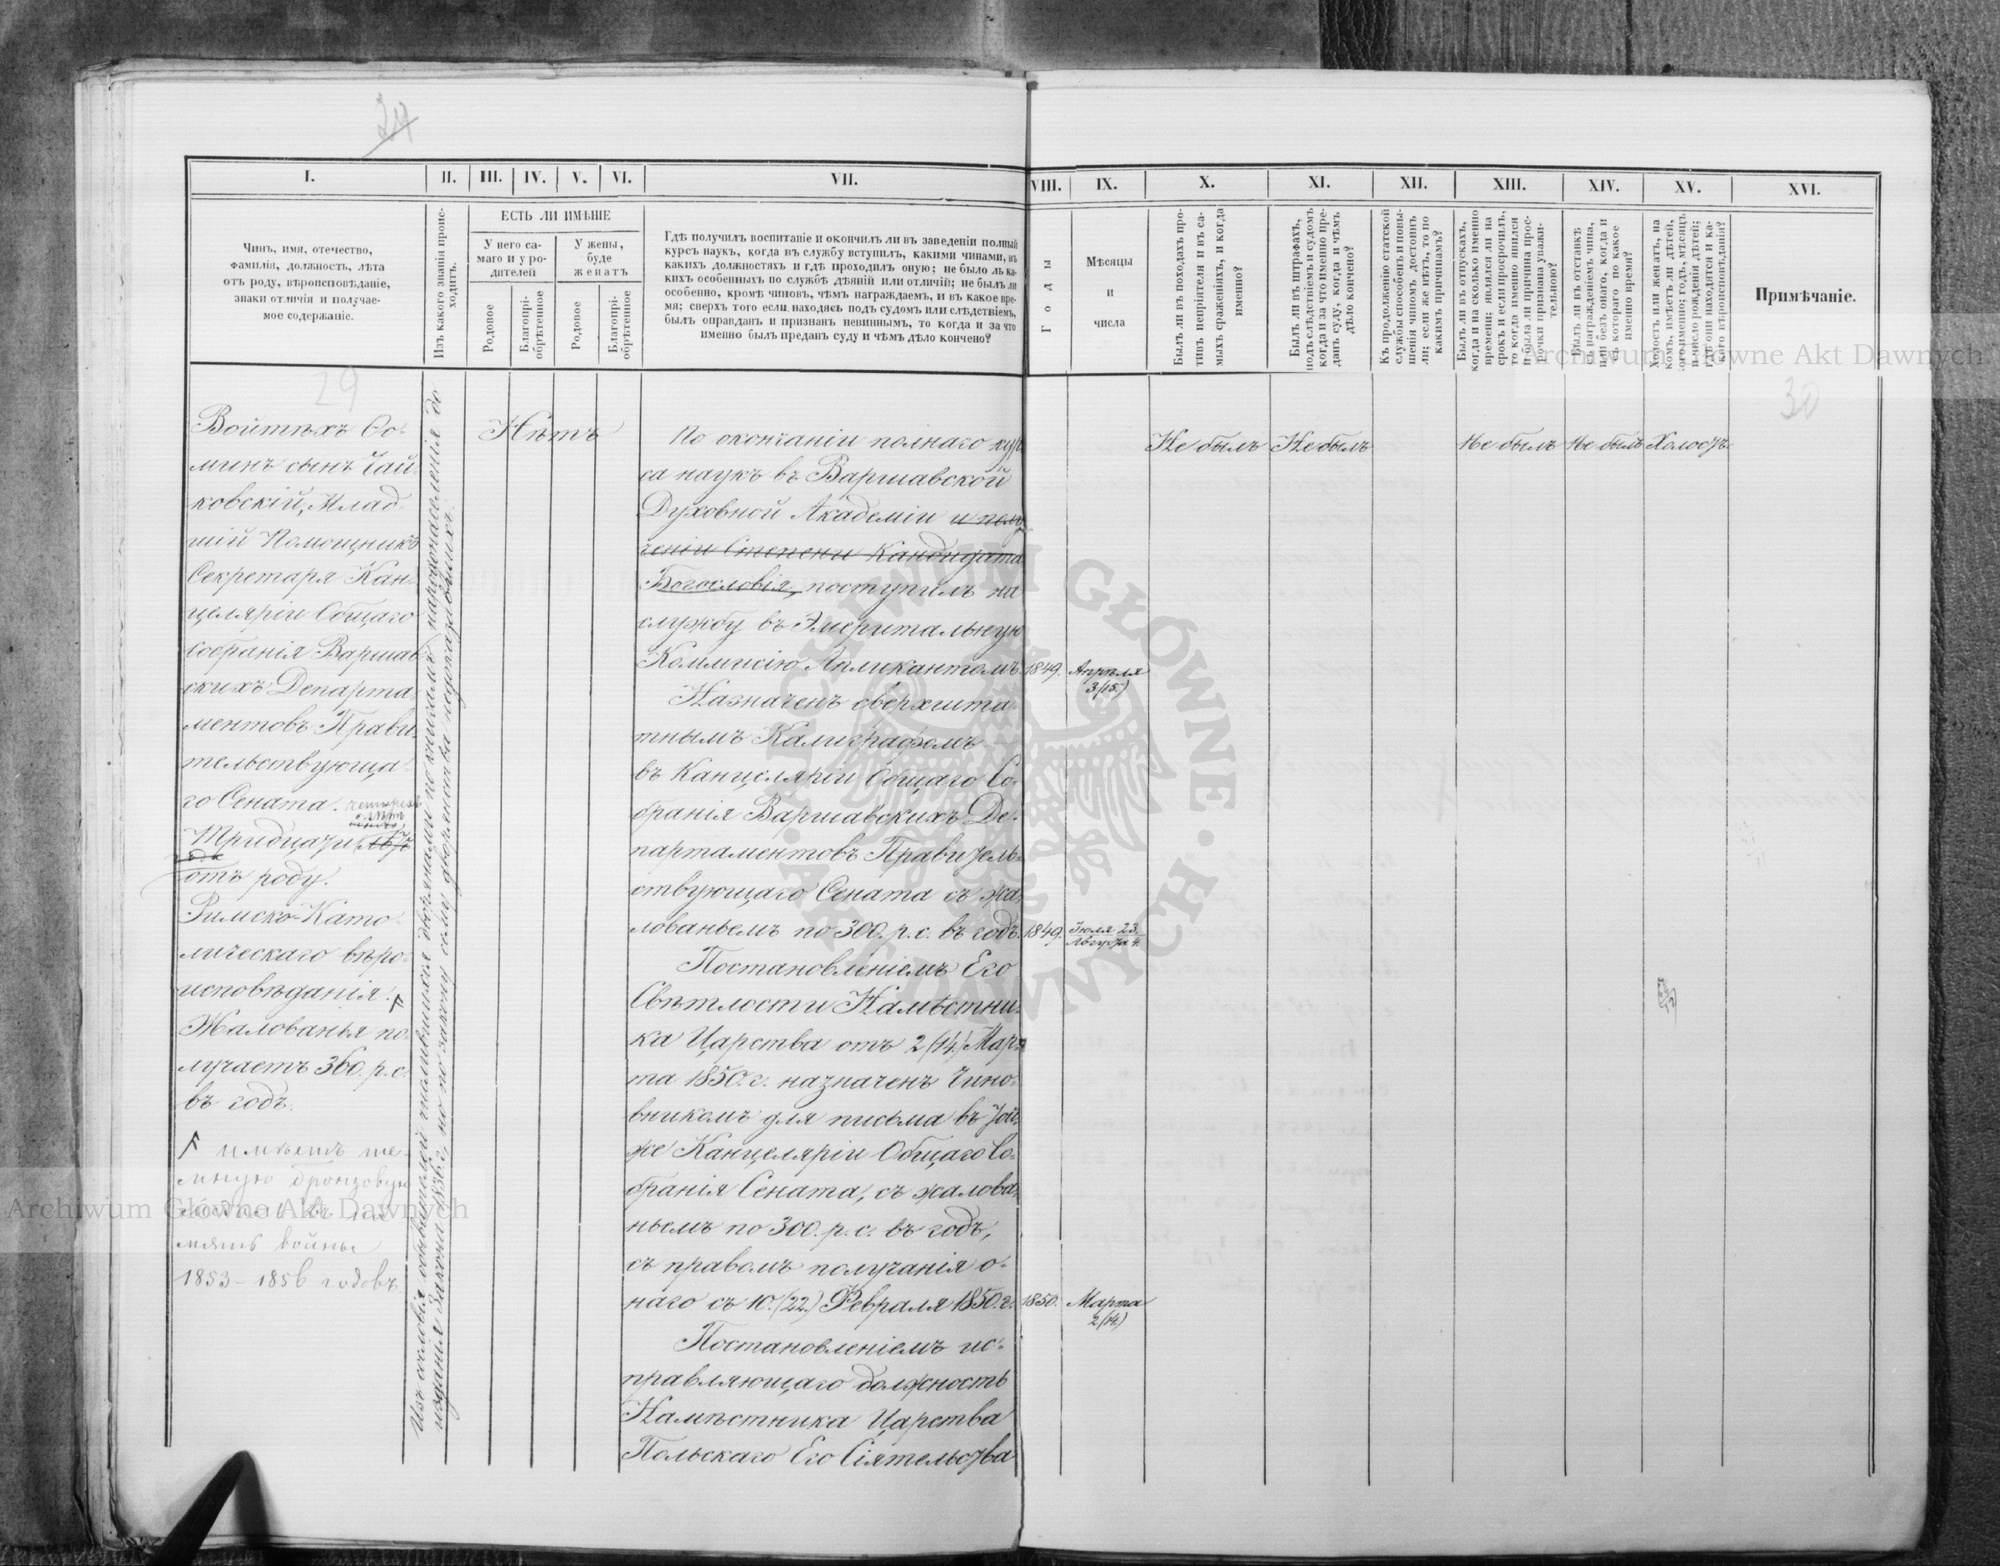 24
I.
II.
III.
IV.
V.
VI.
VII.
VIII.
IX.
X.
XI.
XII.
XIII.
XIV.
XV.
XVI.
Чинъ, имя, отечество,
фамилія, должность, лѣта
отъ роду, вѣроисповѣданіе,
знаки отличія и получае-
мое содержаніе.
Изъ какого званія проис-
ходитъ.
ЕСТЬ ЛИ ИМѢНІЕ
У него са-
маго и у ро-
дителей
У жены,
буде
женатъ
Родовое
Благопрі-
обрѣтенное
Родовое
Благопрі-
обрѣтенное
Гдѣ получилъ воспитаніе и окончилъ ли въ заведеніи полный
курсъ наукъ, когда въ службу вступилъ, какими чинами, въ
какихъ должностяхъ и гдѣ проходилъ оную; не было ль ка-
кихъ особенныхъ по службѣ дѣяній или отличій; не былъ ли
особенно, кромѣ чиновъ, чѣмъ награждаемъ, и въ какое вре-
мя; сверхъ того если находясь подъ судомъ или слѣдствіемъ,
былъ оправданъ и признанъ невиннымъ, то когда и за что
именно былъ преданъ суду и чѣмъ дѣло кончено?
Годы
Мѣсяцы
и
числа
Былъ ли въ походахъ про-
тивъ непріятеля и въ са-
мыхъ сраженіяхъ, и когда
именно?
Былъ ли въ штрафахъ,
подъ слѣдствіемъ и судомъ
когда и за что именно пре-
данъ суду, когда и чѣмъ
дѣло кончено?
Къ продолженію статской
службы способенъ и повы-
шенія чиномъ достоинъ
ли; если же нѣтъ, то по
какимъ причинамъ?
Былъ ли въ отпускахъ,
когда и на сколько именно
времени; являлся ли на
срокъ и если просрочилъ,
то когда именно явился
и была ли причина прос-
рочки признана уважи-
тельною?
Былъ ли въ отставкѣ
съ награжденіемъ чина,
или безъ онаго, когда и
съ котораго по какое
именно время?
Холостъ или женатъ, на
комъ, имѣетъ ли дѣтей,
кого именно; годъ, мѣсяцъ
и число рожденія дѣтей;
гдѣ они находятся и ка-
кого вѣроисповѣданія?
Примѣчаніе.
29
30
Войтѣхъ Ѳо-
минъ сынъ Чай-
ковскій, Млад-
шій Помощникъ
Секретаря Кан-
целяріи Общаго
Собранія Варшав-
скихъ Департа-
ментовъ Прави-
тельствующа-
го Сената.
Тридцати
отъ роду.
Римско-Като-
лическаго вѣро-
исповѣданія.
Жалованья по-
лучаетъ 360. р. с.
въ годъ.
имѣетъ те-
мную бронзовую
медаль въ па-
мять войны
1853-1856 годовъ
Нѣтъ
По окончаніи полнаго кур-
са наукъ въ Варшавской
Духовной Академіи и полу-
ченіи Степени Кандидата
Богословія, поступилъ на
службу въ Эмеритальную
Коммисію Апликантомъ
1849.
Апрѣля
3/15.)
Назначенъ сверхшта-
тнымъ Калиграфомъ
въ Канцеляріи Общаго Со-
бранія Варшавскихъ Де-
партаментовъ Правитель-
ствующаго Сената съ жа-
лованьемъ по 300. р. с. въ годъ.
1849.
Іюля 23.
Августа 4.
Постановленіемъ Его
Свѣтлости Намѣстни-
ка Царства отъ 2/14.) Мар-
та 1850. г. назначенъ Чино-
вникомъ для письма въ той-
же Канцеляріи Общаго Со-
бранія Сената, съ жалова-
ньемъ по 300. р. с. въ годъ,
съ правомъ получанія о-
наго съ 10. (22.) Февраля 1850. г.
1850.
Марта
2/14.)
Постановленіемъ ис-
правляющаго должность
Намѣстника Царства
Польскаго Его Сіятельства
Не былъ
Не былъ
Не былъ
Не былъ
Холостъ
Archiwum Główne Akt Dawnych
Archiwum Główne Akt Dawnych
ARCHIWUM GŁÓWNE AKT DAWNYCH